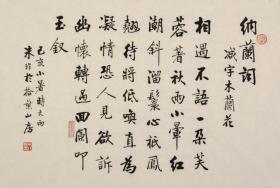 納蘭詞
減字木蘭花
相逢不語一朵芙
蓉著秋雨小暈紅
潮斜溜鬟心只鳳
翹待將低喚直為
凝情恐人見欲訴
幽懷轉過回闌叩
玉釵
己亥小暑時大雨
於拾葉山房